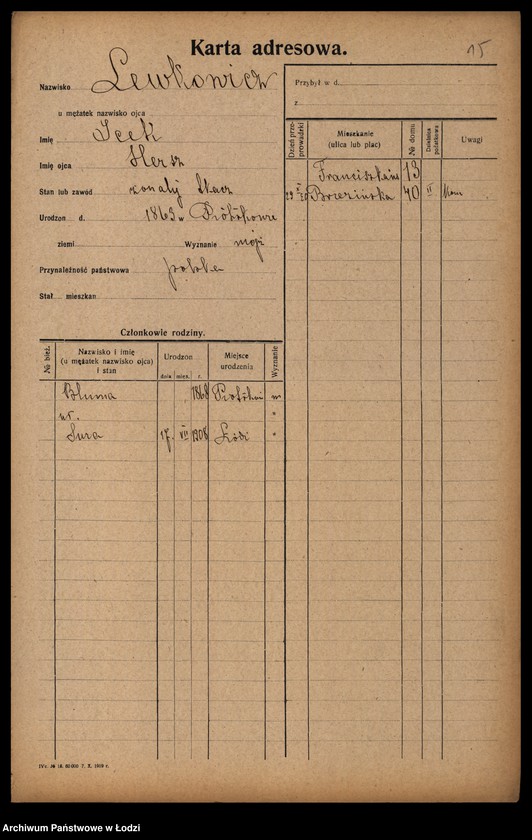 Karta adresowa.
15
Nazwisko Lewkowicz
u mężatek nazwisko ojca
Imię Icek
Imię ojca Hersz
Stan lub zawód żonaty
Urodzon d. 1863 w
ziemi Wyznanie mojż
Przynależność państwowa polska
Stał. mieszkan
Przybył w d.
z
Dzień przeprowadzki
Mieszkanie
(ulica lub plac)
№ domu
Dzielnica podatkowa
Uwagi
Franciszkańs 13
Brzezińska 40 II
Członkowie rodziny.
№ bież.
Nazwisko i imię
(u mężatek nazwisko ojca)
i stan
Urodzon
dnia mies. r.
Miejsce
urodzenia
Wyznanie
Bluma 1868 m
Sura 17 VII 1908 Łódź "
Archiwum Państwowe w Łodzi